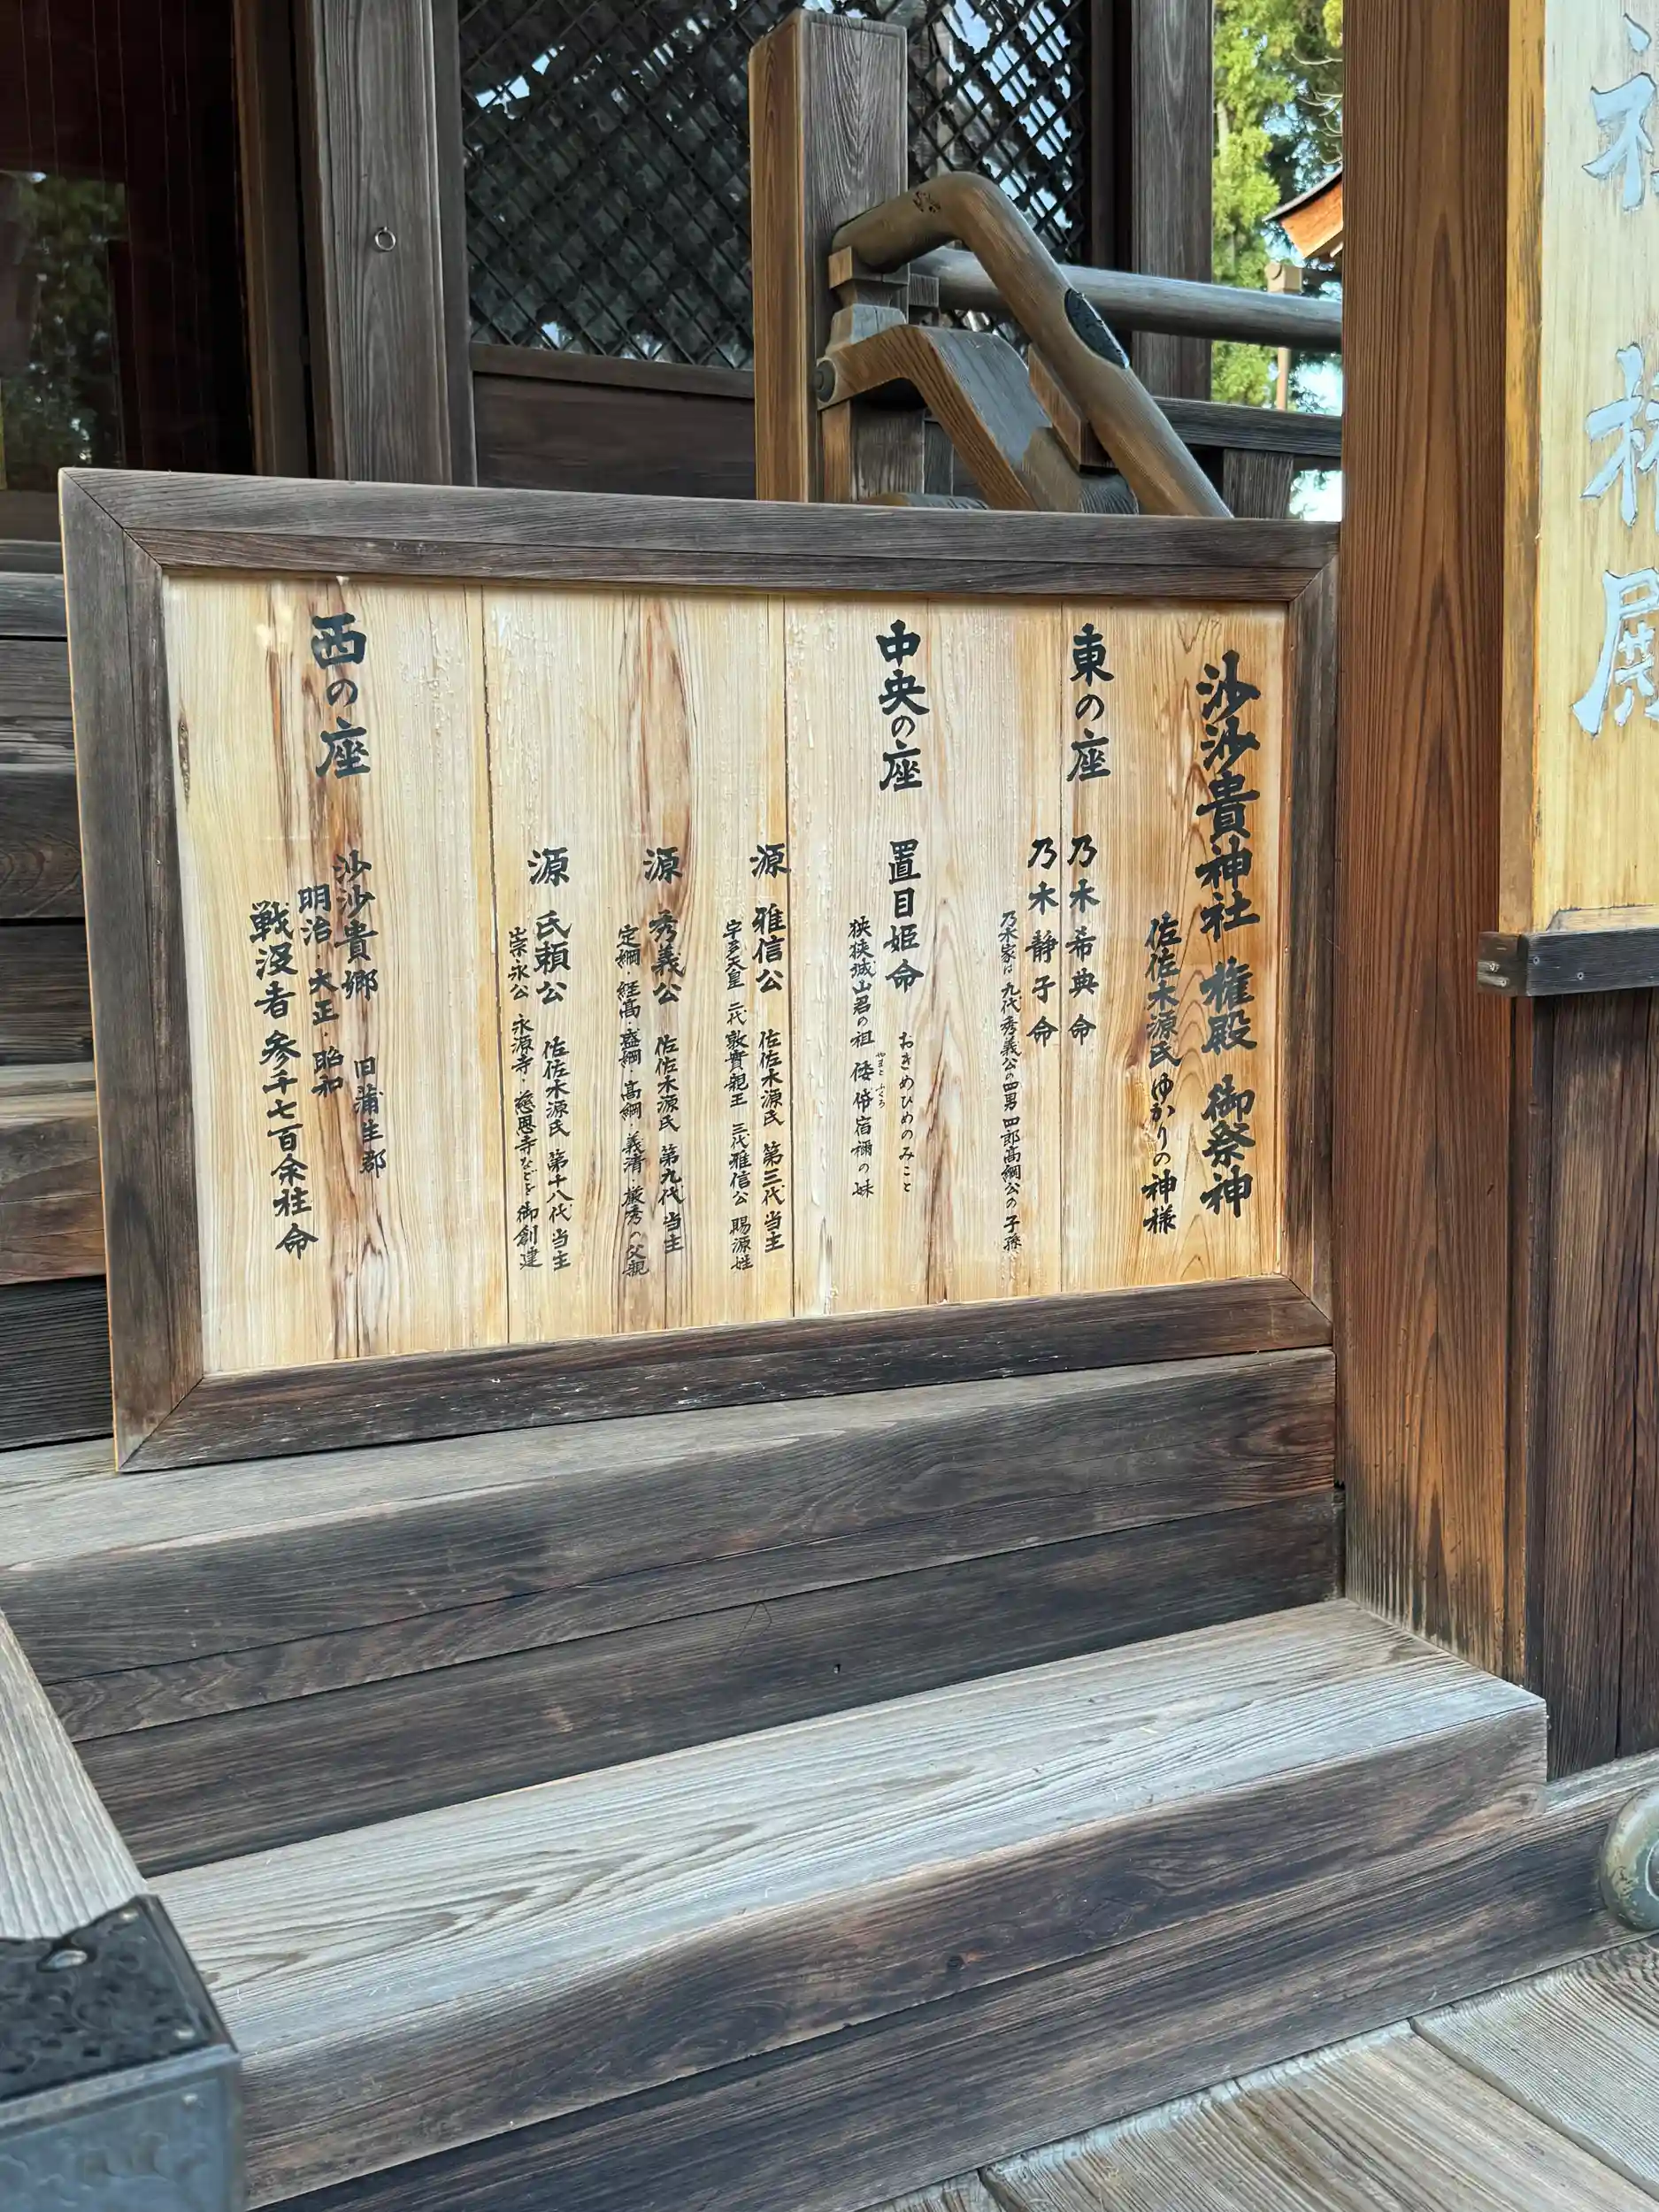 沙沙貴神社 権殿 御祭神
佐佐木源氏 ゆかりの神様
東の座
乃木希典命
乃木静子命
乃木家は 九代秀義公の四男 四郎高綱公の子孫
中央の座
置目姫命 おきめひめのみこと
狭狭城山君の祖 倭帒宿禰の妹
やまと ふくろ
源 雅信公 佐佐木源氏 第三代 当主
宇多天皇 二代 敦實親王 三代 雅信公 賜源姓
源 秀義公 佐佐木源氏 第九代 当主
定綱・経高・盛綱・高綱・義清・厳秀の父親
源 氏頼公 佐佐木源氏 第十八代 当主
崇永公 永源寺・慈恩寺などを御創建
西の座
沙沙貴郷 旧蒲生郡
明治・大正・昭和
戦没者 参千七百余柱命